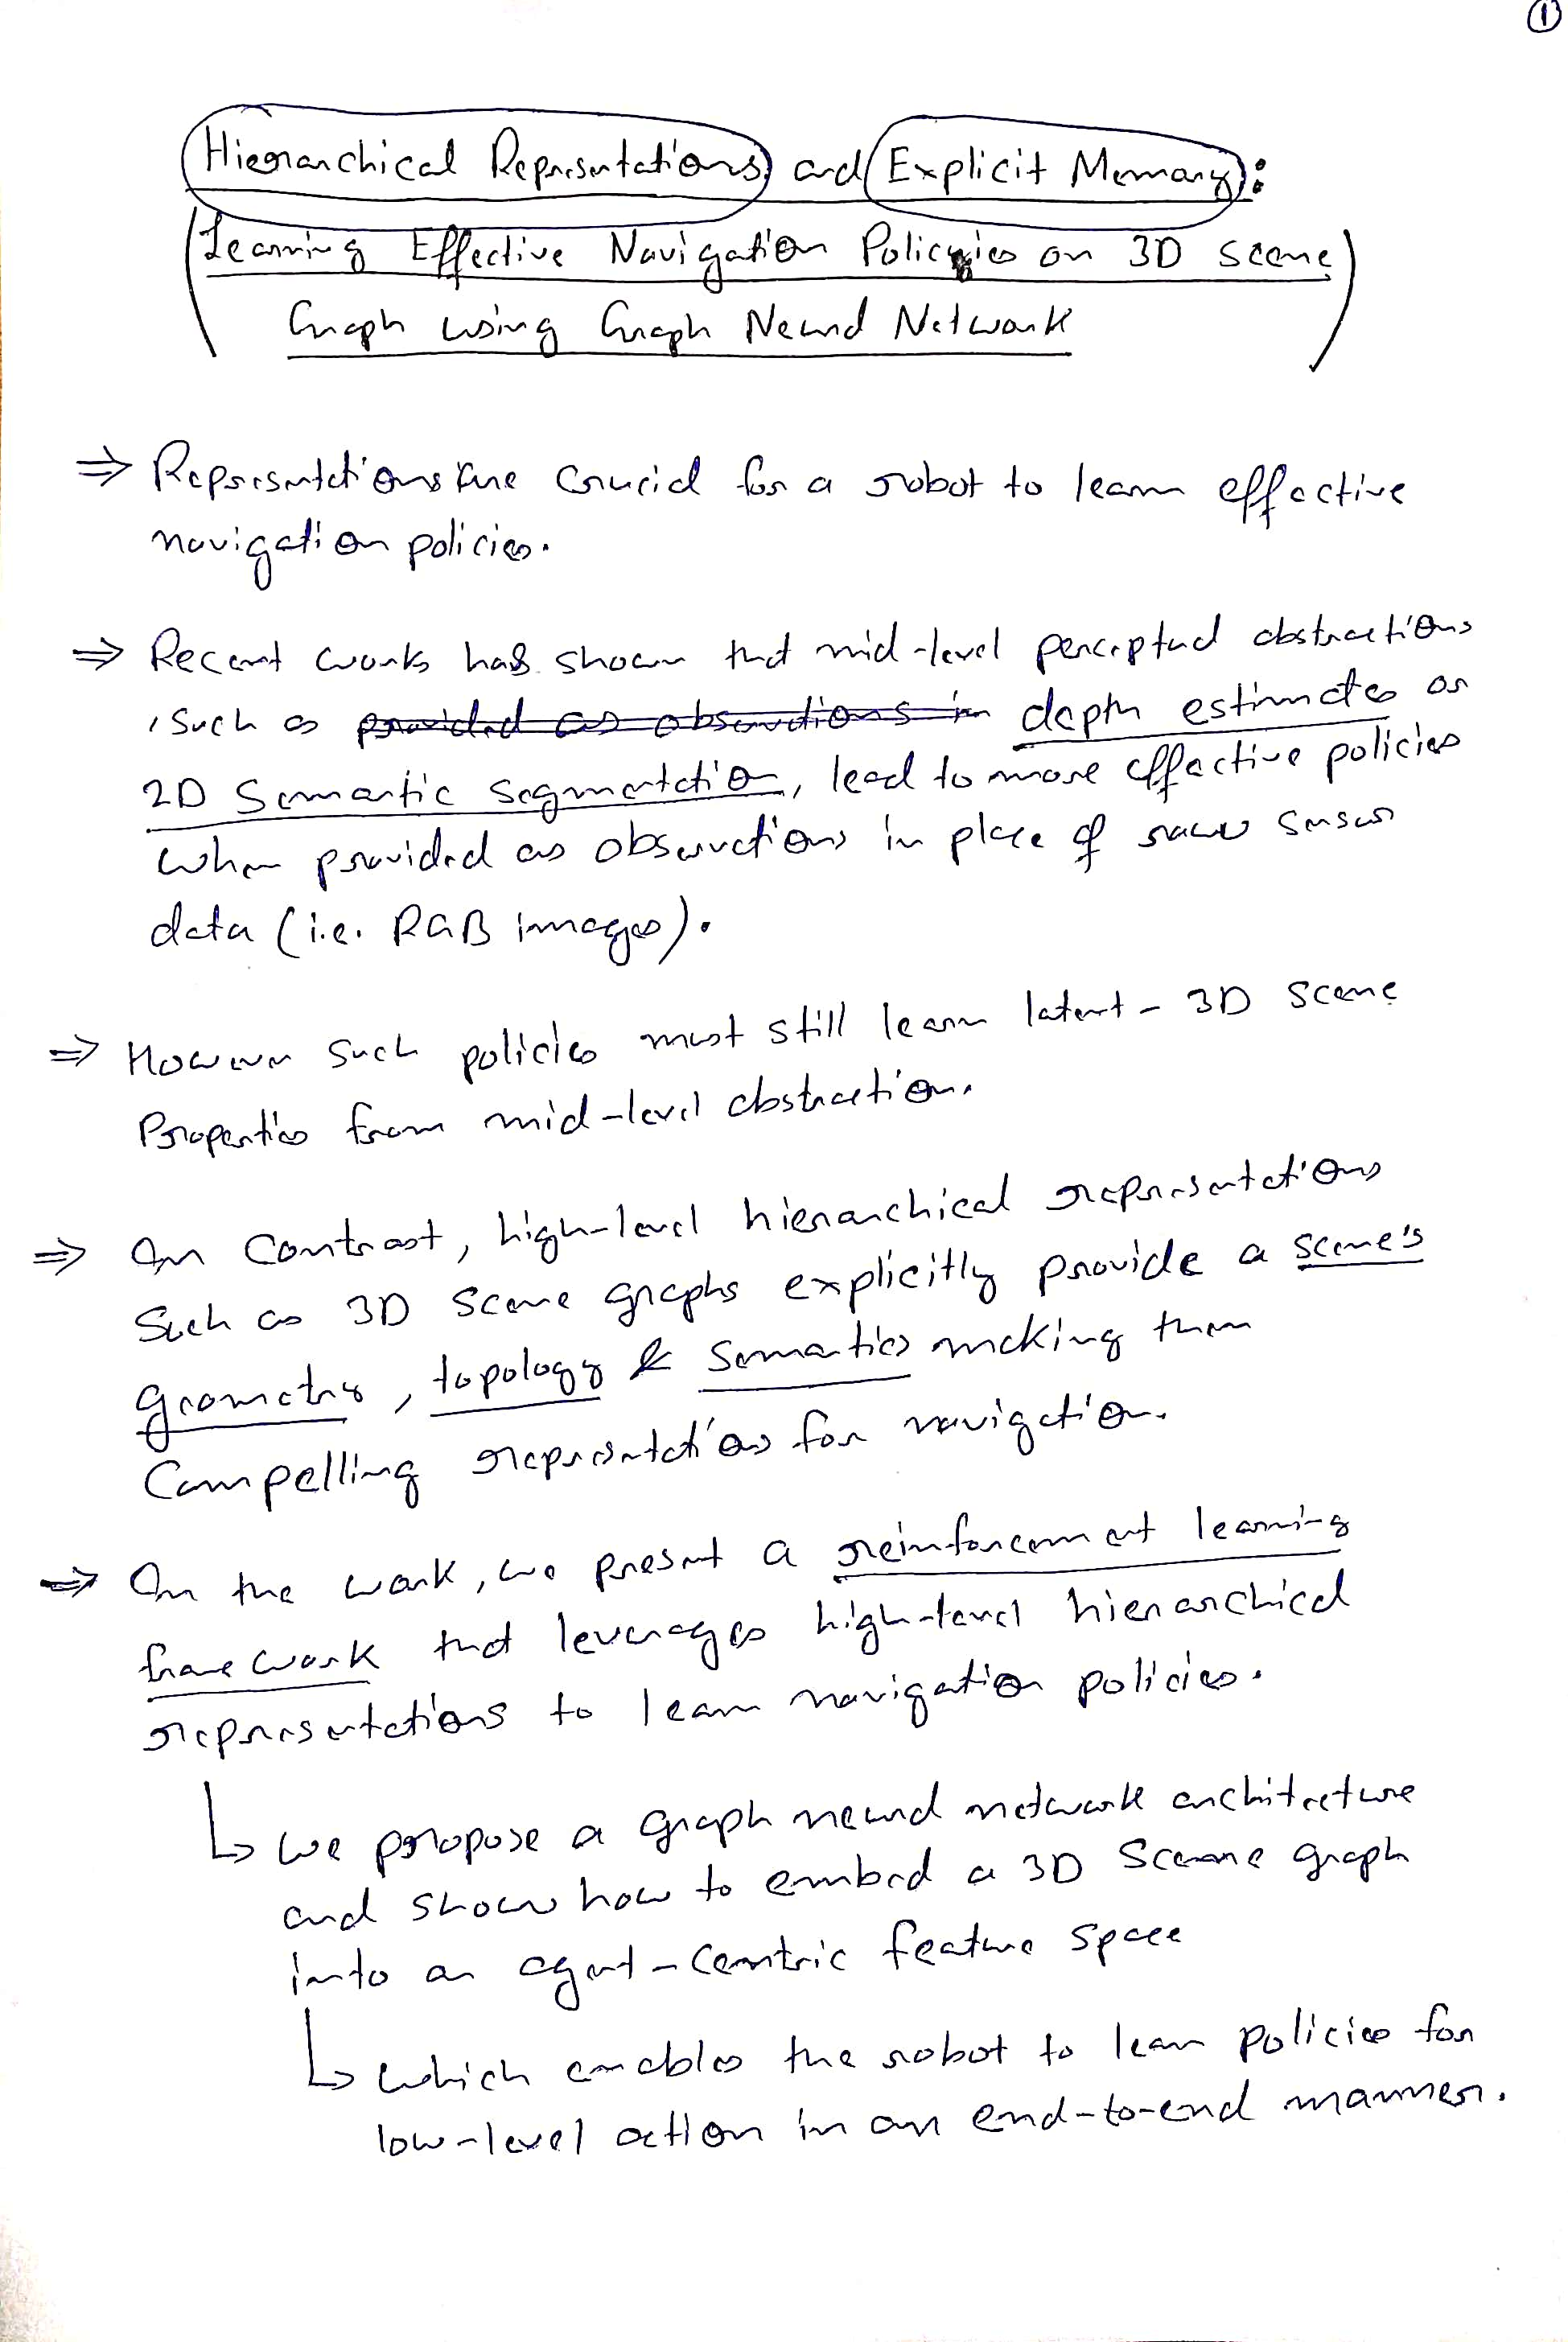 ①
Hierarchical Representations and Explicit Memory:
Learning Effective Navigation Policies on 3D scene
Graph using Graph Neural Network
⇒ Representations are crucial for a robot to learn effective
navigation policies.
⇒ Recent works has shown that mid-level perceptual abstractions
, such as provided as observations in depth estimates or
2D Semantic segmentation, lead to more effective policies
when provided as observations in place of raw sensor
data (i.e. RGB images).
⇒ However such policies must still learn latent - 3D scene
Properties from mid-level abstraction.
⇒ In contrast, high-level hierarchical representations
Such as 3D scene graphs explicitly provide a scene's
geometry, topology & semantics making them
Compelling representations for navigation.
⇒ In the work, we present a reinforcement learning
framework that leverages high-level hierarchical
representations to learn navigation policies.
↳ we propose a graph neural network architecture
and show how to embed a 3D Scene graph
into an agent-centric feature space
↳ which enables the robot to learn policies for
low-level action in an end-to-end manner.